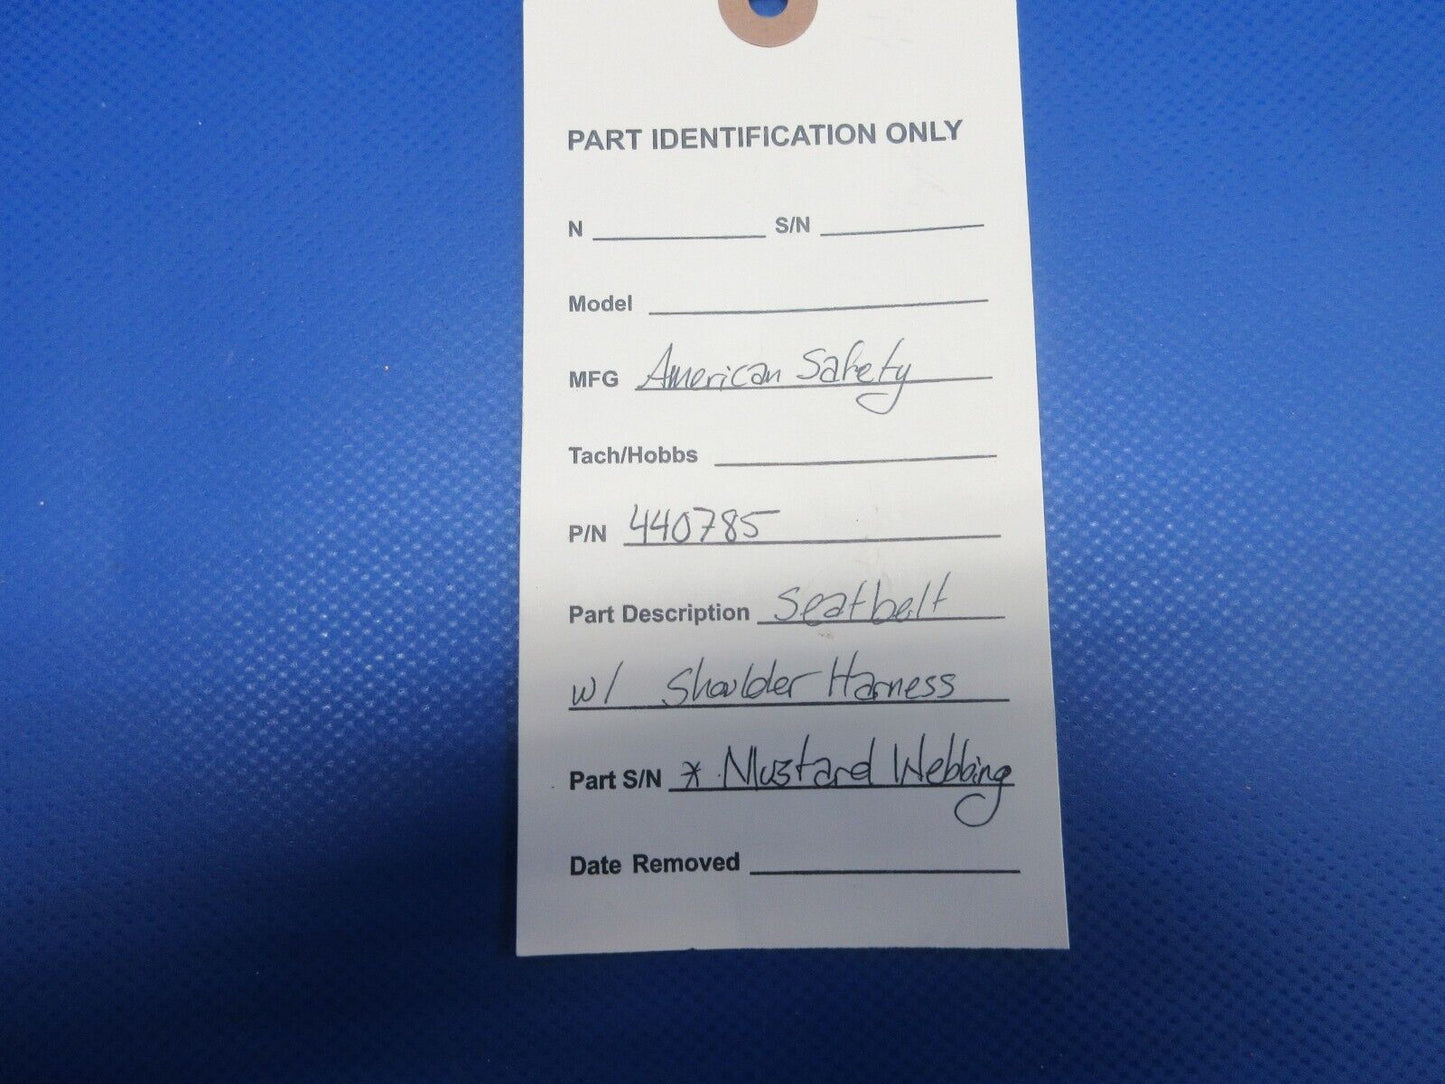 PART IDENTIFICATION ONLY
N S/N
Model
MFG American Safety
Tach/Hobbs
P/N 440785
Part Description Seatbelt
w/ Shoulder Harness
Part S/N * Mustard Webbing
Date Removed